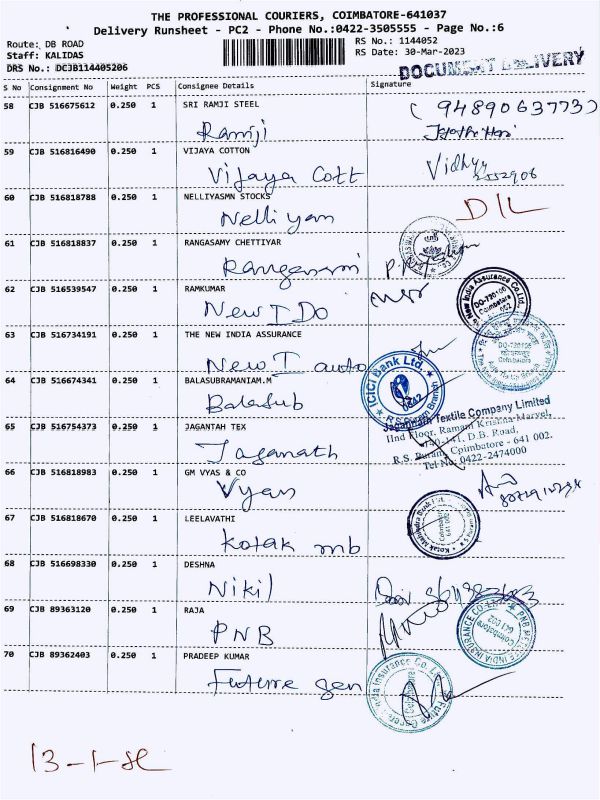 THE PROFESSIONAL COURIERS, COIMBATORE-641037
Delivery Runsheet - PC2 - Phone No.:0422-3505555 - Page No.:6
Route: DB ROAD RS No.: 1144052
Staff: KALIDAS RS Date: 30-Mar-2023
DRS No.: DCJB114405206 DOCUMENT DELIVERY
S No Consignment No Weight PCS Consignee Details Signature
58 CJB 516675612 0.250 1 SRI RAMJI STEEL (9489063773)
Ramji
59 CJB 516816490 0.250 1 VIJAYA COTTON
Vijaya Cott
60 CJB 516818788 0.250 1 NELLIYASMN STOCKS D/L
Nelliyan
61 CJB 516818837 0.250 1 RANGASAMY CHETTIYAR
Rangasami
62 CJB 516539547 0.250 1 RAMKUMAR
New I Do
63 CJB 516734191 0.250 1 THE NEW INDIA ASSURANCE
New I auto
64 CJB 516674341 0.250 1 BALASUBRAMANIAM.M ICICI Bank Ltd.
Balasub
65 CJB 516754373 0.250 1 JAGANTAH TEX Jagannath Textile Company Limited
IInd Floor, Ramani Krishna Marvel,
Jaganath D.B. Road,
R.S. Puram, Coimbatore - 641 002.
Tel No: 0422-2474000
66 CJB 516818983 0.250 1 GM VYAS & CO
Vyas
67 CJB 516818670 0.250 1 LEELAVATHI
Kotak mb
68 CJB 516698330 0.250 1 DESHNA
Nikil
69 CJB 89363120 0.250 1 RAJA
PNB
70 CJB 89362403 0.250 1 PRADEEP KUMAR
Future gen